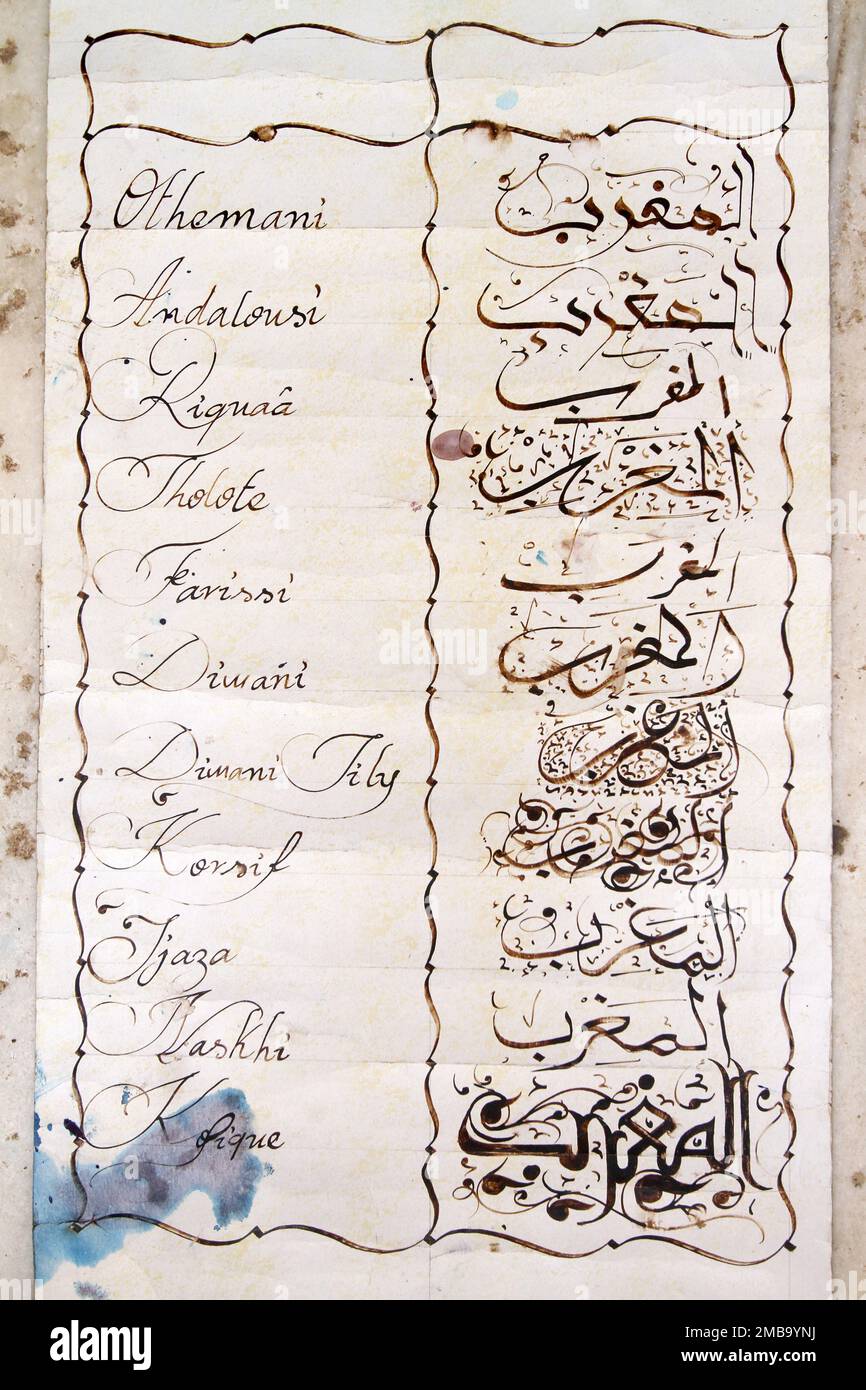 Othemani المغرب
Andalousi المغرب
Riquaâ المغرب
Tholote المغرب
Farissi المغرب
Diwani المغرب
Diwani Jily المغرب
Korsif المغرب
Ijaza المغرب
Naskhi المغرب
Kofique المغرب
alamy
Image ID: 2MB9YNJ
www.alamy.com